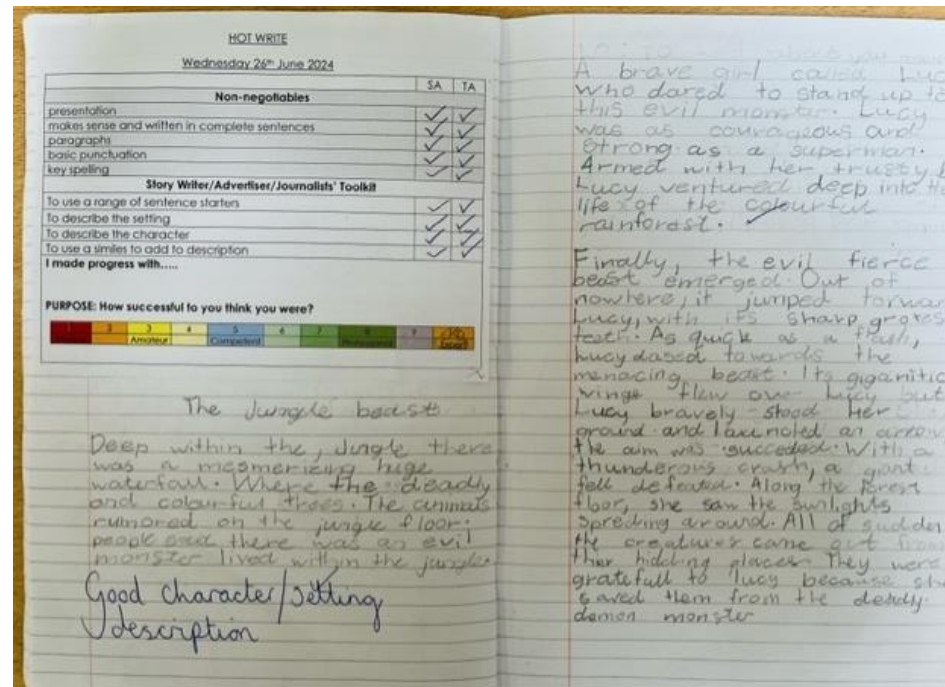 HOT WRITE
Wednesday 26th June 2024
SA TA
Non-negotiables
presentation
makes sense and written in complete sentences
paragraphs
basic punctuation
key spelling
Story Writer/Advertiser/Journalists' Toolkit
To use a range of sentence starters
To describe the setting
To describe the character
To use a similes to add to description
I made progress with.....
PURPOSE: How successful to you think you were?
1 2 3 4 5 6 7 8 9 10
Amateur Competent Professional Expert
The Jungle beast
Deep within the, Jungle there
was a mesmerizing huge
waterfall. Where the deadly
and colourful trees. The animals
rumored on the jungle floor.
people said there was an evil
monster lived within the jungle.
Good character/setting
description
A brave girl called Luc
who dared to stand up to
this evil monster. Lucy
was as courageous and
strong as a superman.
Armed with her trusty
Lucy ventured deep into th
life of the colourful
rainforest.
Finally, the evil fierce
beast emerged. Out of
nowhere, it jumped forwar
Lucy, with its sharp gros
teeth. As quick as a flash,
Lucy dased towards the
menacing beast. Its giganitic
wings flew over Lucy but
Lucy bravely stood her
ground and an arrow
the aim was succeded. With a
thunderous crash, a giant
fell defeated. Along the forest
floor, she saw the sunlights
spreding around. All of sudden
the creatures came out from
ther hidding places They were
gratefull to lucy because sh
saved them from the deadly
demon monster